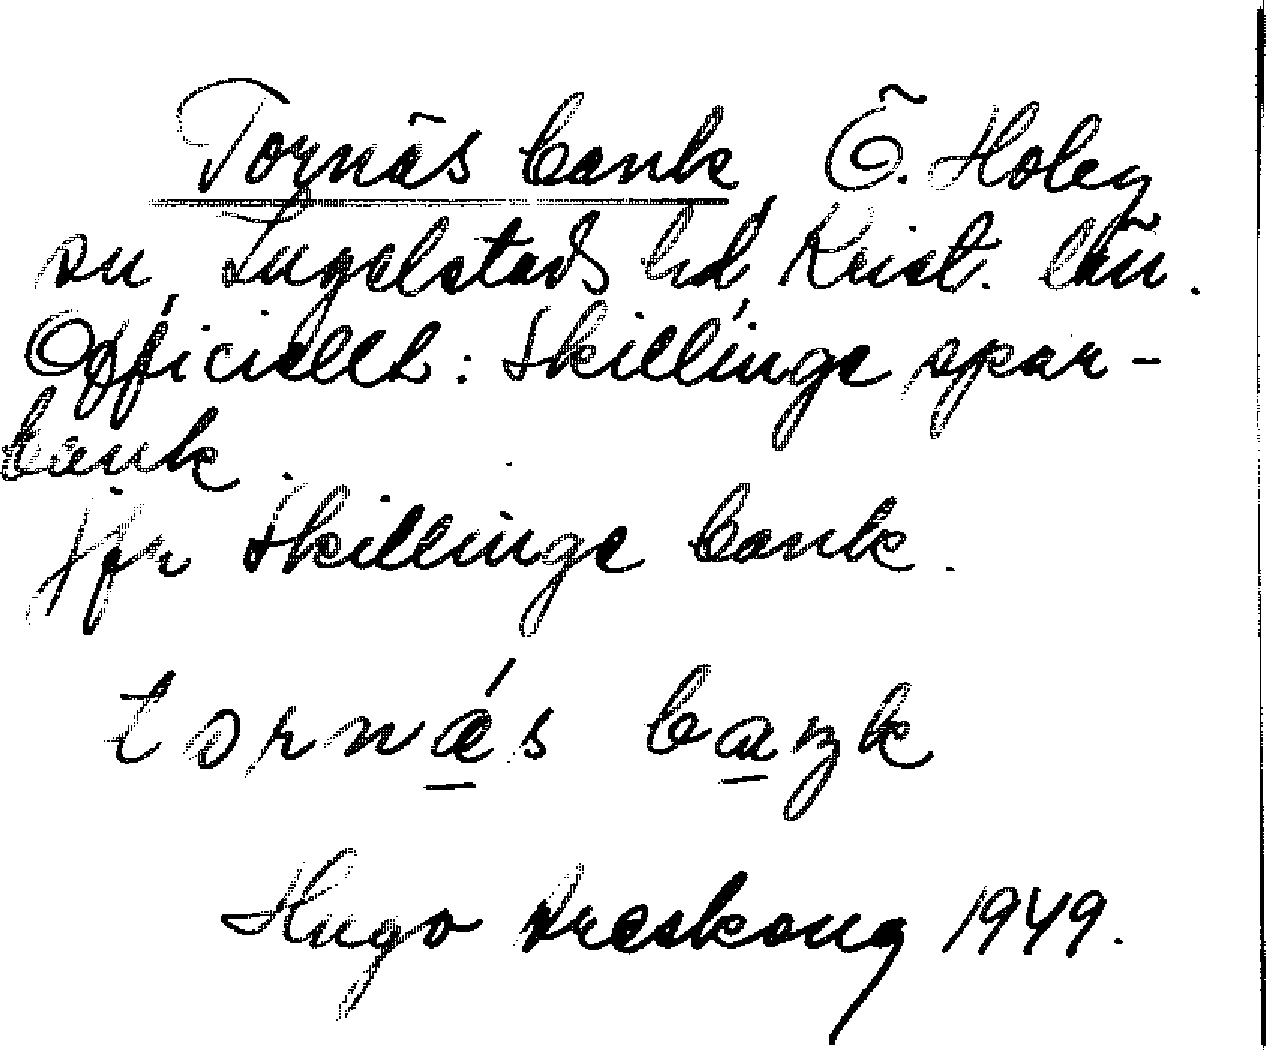 Tornäs bank, Ö. Hoby
sn, Ingelstads hd, Krist. län.
Officiellt: Skillinge spar-
bank.
Jfr Skillinge bank.
tornás bazk
Hugo Areskoug 1949.